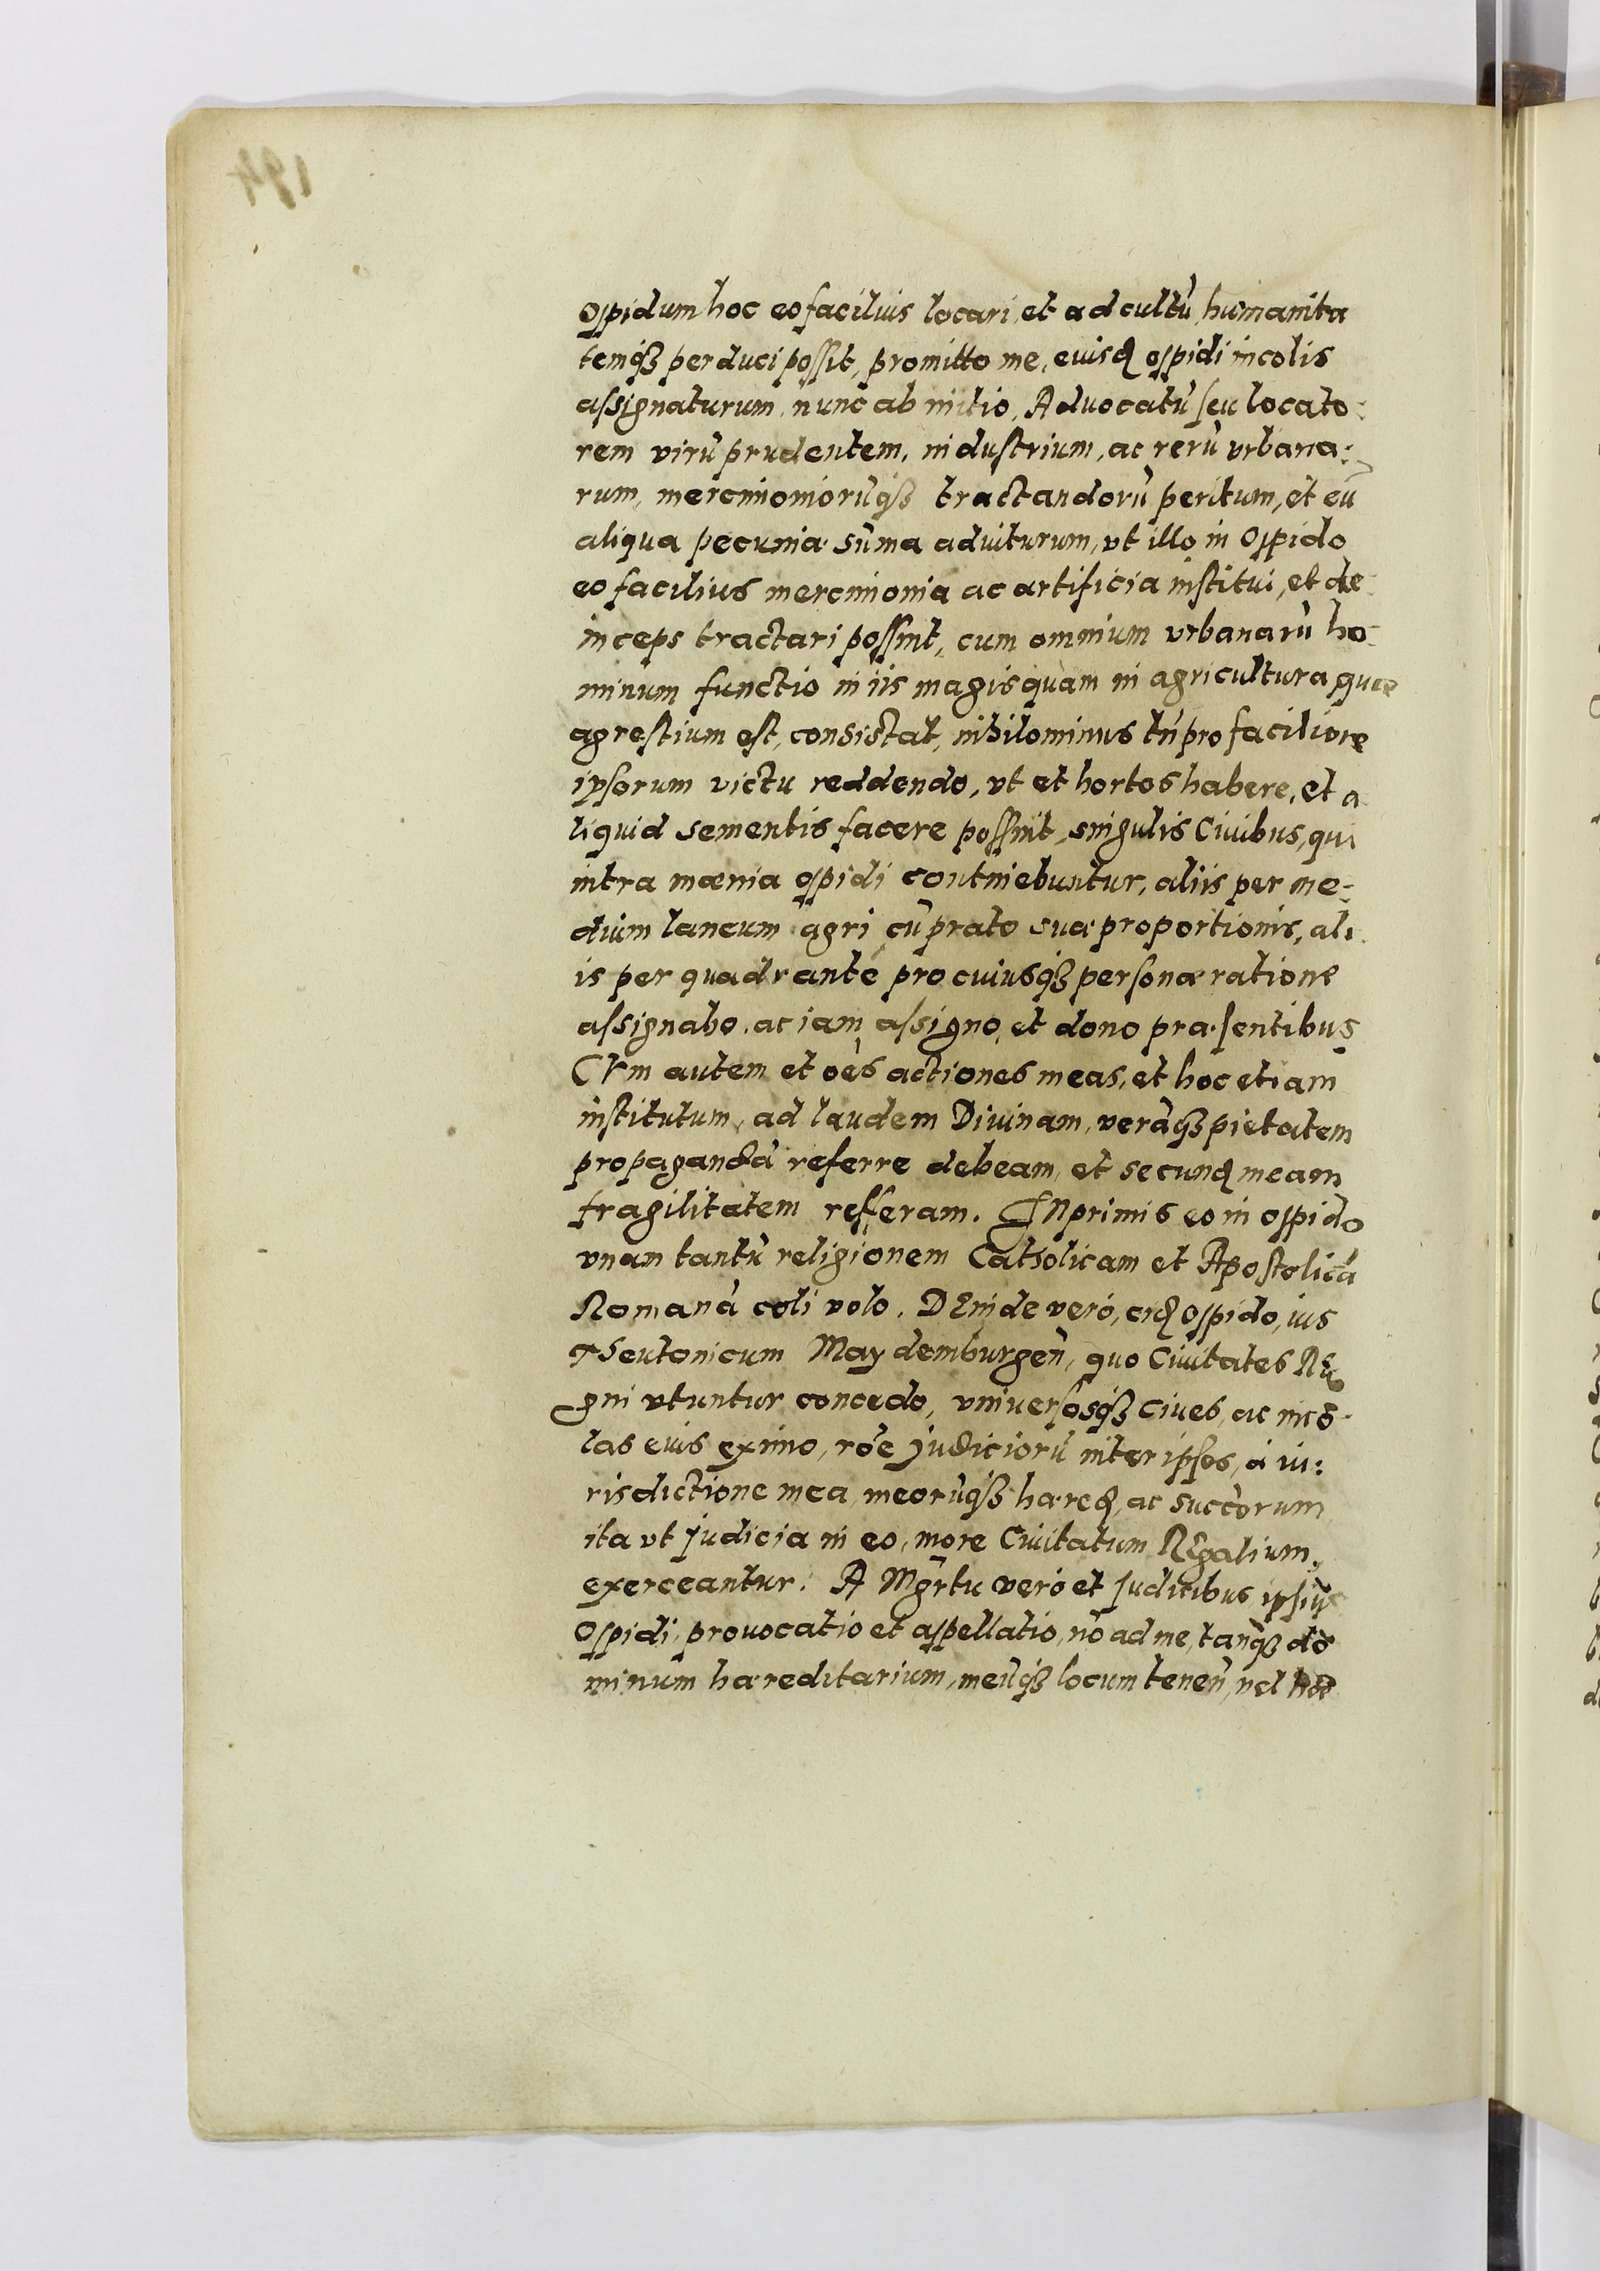 oppidum hoc eo facilius locari, et ad cultũ, humanita
temq̃ȝ perduci possit, promitto me, euisd̨ oppidi incolis
assignaturum, nunc ab initio, Aduocatũ seu locato:
rem virũ prudentem, industrium, ac rerũ vrbana:
rum, mercimoniorũq̃ȝ tractandorũ peritum, et eũ
aliqua pecuniæ sũma aduiturum, vt illo in Oppido
eo facilius mercimonia ac artificia institui, et de:
inceps tractari possint, cum omnium vrbanarũ ho:
minum functio in iis magis quàm in agricultura quæ
agrestium est, consistat, nihilominus tñ pro faciliore
ipsorum victu reddendo, vt et hortos habere, et a
liquid sementis facere possint, singulis Ciuibus, qui
intra mænia oppidi continebuntur, aliis per me:
dium laneum agri cũ prato suæ proportionis, ali
is per quadrantẽ pro cuiusq̃ȝ personæ ratione
assignabo, ac iam assigno, et dono præsentibus
CVm autem et oẽs actiones meas, et hoc etiam
institutum, ad laudem Diuinam, verãq̃ȝ pietatem
propagandã referre debeam, et secund̨ meam
fragilitatem refferam. INprimis eo in oppido
vnam tantũ religionem Catholicam et Apostolicã
Romanã coli volo. DEinde verò, eid̨ oppido, ius
Theutonicum Maydemburgeñ, quo Ciuitates RE
gni vtuntur concedo, vniuersosq̃ȝ ciues, ac inco:
las eius eximo, rõe judiciorũ inter ipsos, à iu:
risdictione mea, meorũq̃ȝ hæred̨, ac succõrum
ita vt judicia in eo, more Ciuitatum REgalium,
exerceantur. A Mgr̃tu verò et judicibus ipsius
Oppidi, prouocatio et appellatio, nõ ad me, tanq̃ȝ do
minum hæreditarium, meũq̃ȝ locum teneñ, vel
194